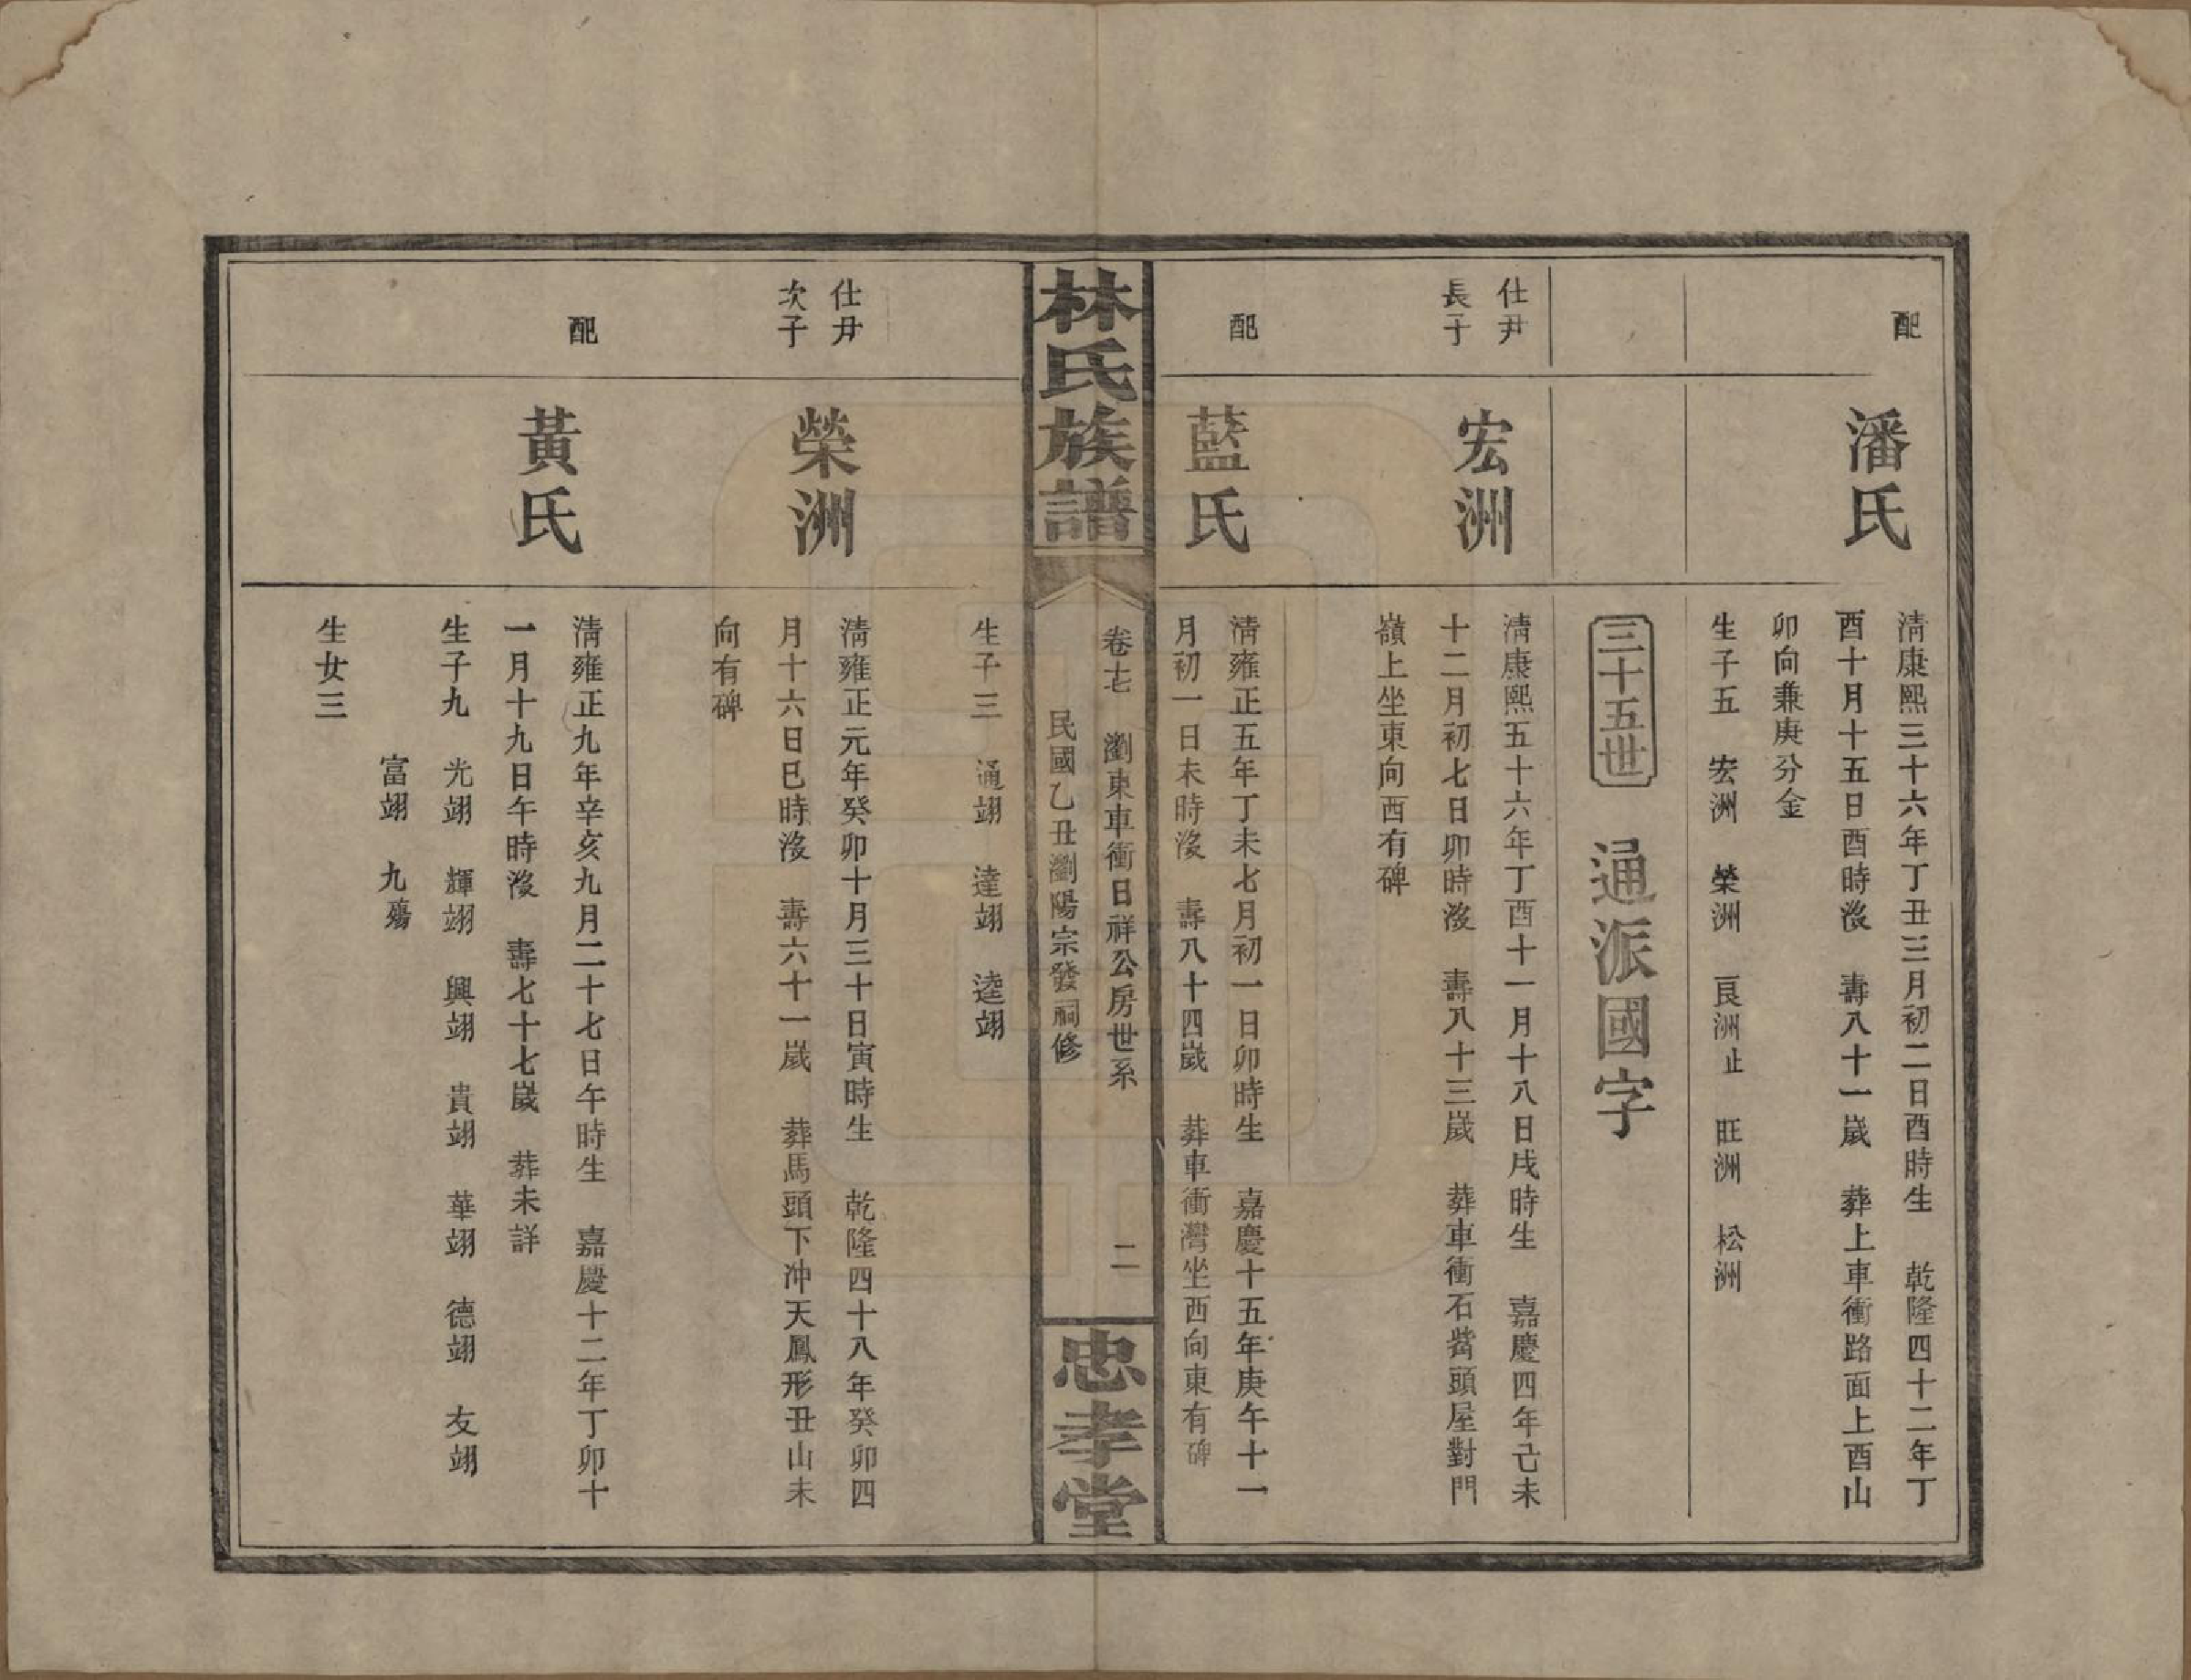 配
潘氏
清康熙三十六年丁丑三月初二日酉時生　乾隆四十二年丁
酉十月十五日酉時沒　壽八十一歲　葬上車衝路面上酉山
卯向兼庚分金
生子五　宏洲　榮洲　良洲止　旺洲　松洲
三十五世　通派國字
仕尹
長子
宏洲
清康熙五十六年丁酉十一月十八日戌時生　嘉慶四年己未
十二月初七日卯時沒　壽八十三歲　葬車衝石觜頭屋對門
嶺上坐東向西有碑
配
藍氏
清雍正五年丁未七月初一日卯時生　嘉慶十五年庚午十一
月初一日未時沒　壽八十四歲　葬車衝灣坐西向東有碑
林氏族譜
卷十七　瀏東車衝日祥公房世系　二
民國乙丑瀏陽宗發祠修
忠孝堂
生子三　通翊　達翊　逵翊
仕尹
次子
榮洲
清雍正元年癸卯十月三十日寅時生　乾隆四十八年癸卯四
月十六日巳時沒　壽六十一歲　葬馬頭下冲天鳳形丑山未
向有碑
配
黃氏
清雍正九年辛亥九月二十七日午時生　嘉慶十二年丁卯十
一月十九日午時沒　壽七十七歲　葬未詳
生子九　光翊　輝翊　興翊　貴翊　華翊　德翊　友翊
富翊　九殤
生女三